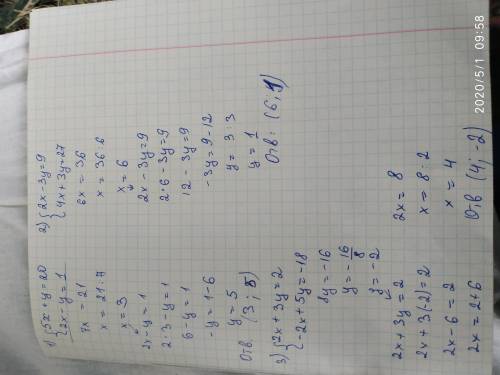 1) {5x + y = 20
{2x - y = 1
7x = 21
x = 21 : 7
x = 3
2x - y = 1
2·3 - y = 1
6 - y = 1
-y = 1 - 6
y = 5
Отв. (3 ; 5)
2) {2x - 3y = 9
{4x + 3y = 27
6x = 36
x = 36 : 6
x = 6
2x - 3y = 9
2·6 - 3y = 9
12 - 3y = 9
-3y = 9 - 12
y = 3 : 3
y = 1
Отв: (6 ; 1)
3) {2x + 3y = 2
{-2x + 5y = -18
8y = -16
y = -16/8
y = -2
2x + 3y = 2
2x + 3(-2) = 2
2x - 6 = 2
2x = 2 + 6
2x = 8
x = 8 : 2
x = 4
Отв (4 ; -2)
2020/5/1 09:58